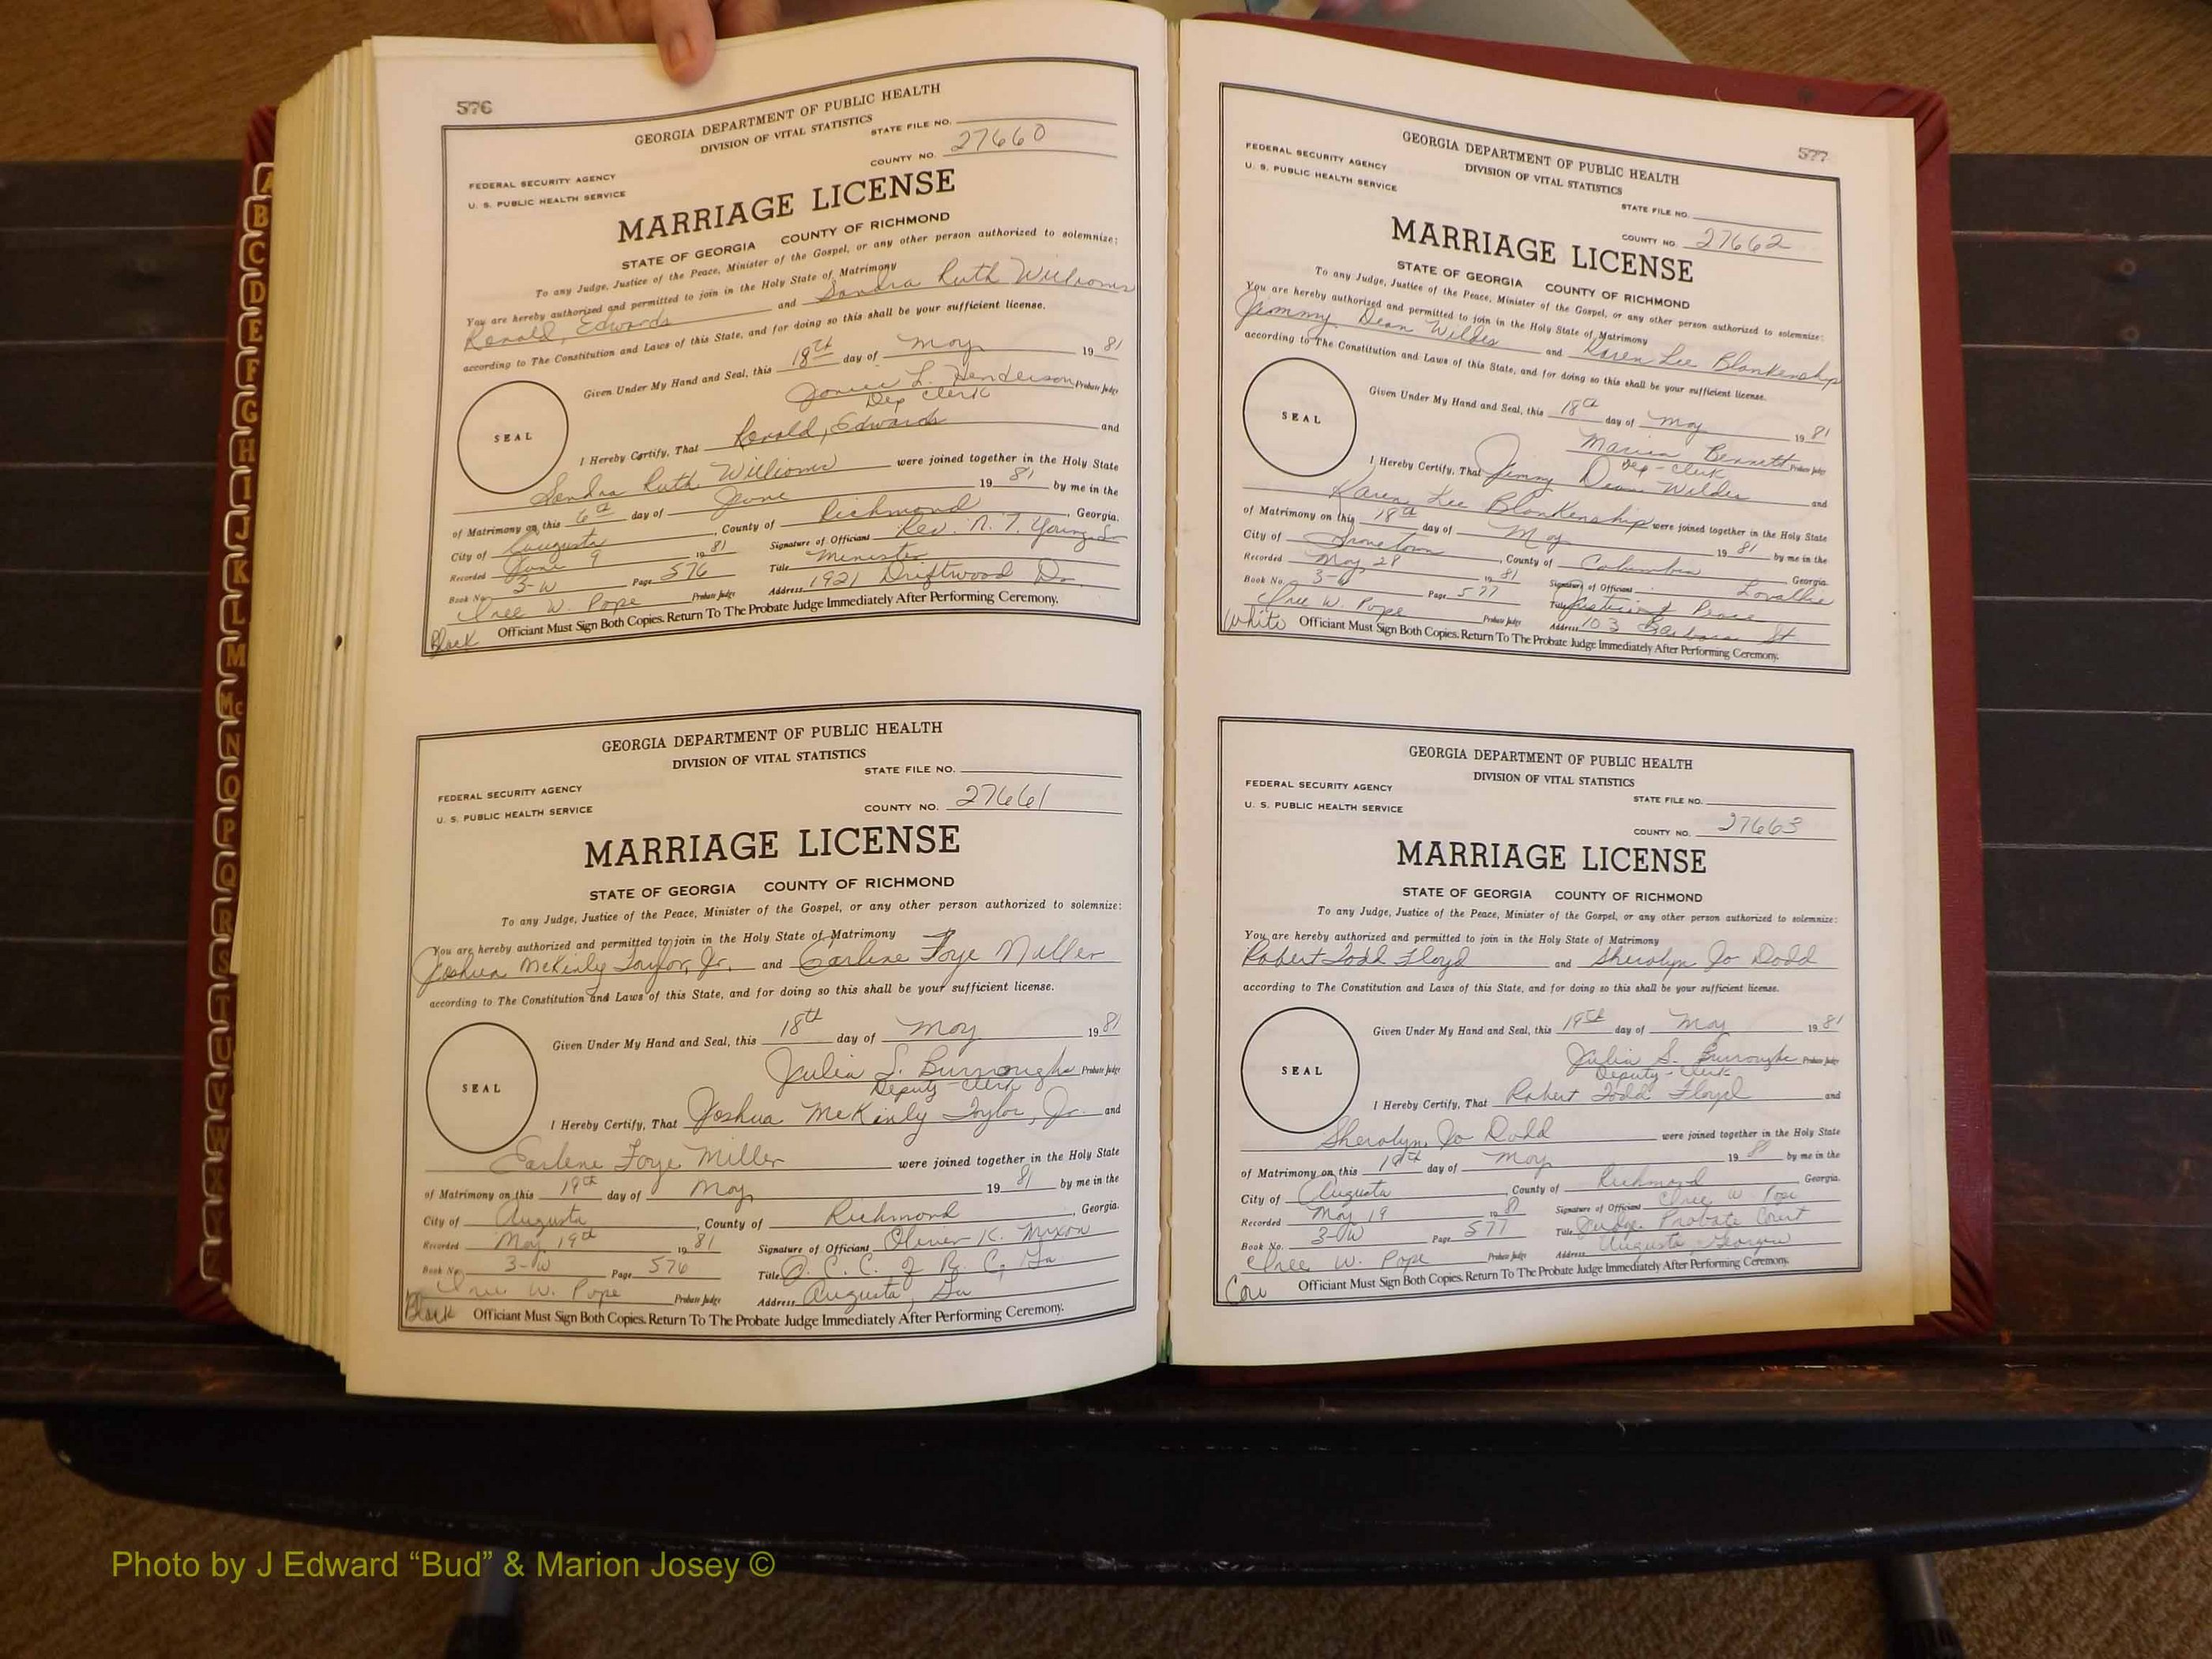 576
GEORGIA DEPARTMENT OF PUBLIC HEALTH
DIVISION OF VITAL STATISTICS
STATE FILE NO.
COUNTY NO. 27660
FEDERAL SECURITY AGENCY
U. S. PUBLIC HEALTH SERVICE
MARRIAGE LICENSE
STATE OF GEORGIA COUNTY OF RICHMOND
To any Judge, Justice of the Peace, Minister of the Gospel, or any other person authorized to solemnize:
You are hereby authorized and permitted to join in the Holy State of Matrimony
Ronald, Edwards and Sandra Ruth Williams
according to The Constitution and Laws of this State, and for doing so this shall be your sufficient license.
Given Under My Hand and Seal, this 18th day of May 1981
L. Henderson Probate Judge
Dep Clerk
SEAL
I Hereby Certify, That Ronald, Edwards and
Sandra Ruth Williams were joined together in the Holy State
of Matrimony on this 6th day of June 1981 by me in the
City of Augusta, County of Richmond, Georgia.
Recorded June 9 1981 Signature of Officiant Rev. N. T. Young
Book No. 3-W Page 576 Title Minister
W. Pope Probate Judge Address 1921 Driftwood Dr.
Black Officiant Must Sign Both Copies. Return To The Probate Judge Immediately After Performing Ceremony.
GEORGIA DEPARTMENT OF PUBLIC HEALTH
DIVISION OF VITAL STATISTICS
STATE FILE NO.
FEDERAL SECURITY AGENCY
U. S. PUBLIC HEALTH SERVICE
COUNTY NO. 27661
MARRIAGE LICENSE
STATE OF GEORGIA COUNTY OF RICHMOND
To any Judge, Justice of the Peace, Minister of the Gospel, or any other person authorized to solemnize:
You are hereby authorized and permitted to join in the Holy State of Matrimony
Joshua McKinly Taylor, Jr. and Earlene Faye Miller
according to The Constitution and Laws of this State, and for doing so this shall be your sufficient license.
Given Under My Hand and Seal, this 18th day of May 1981
Julia S. Burroughs Probate Judge
Deputy-Clerk
SEAL
I Hereby Certify, That Joshua McKinly Taylor, Jr. and
Earlene Faye Miller were joined together in the Holy State
of Matrimony on this 19th day of May 1981 by me in the
City of Augusta, County of Richmond, Georgia.
Recorded May 19th 1981 Signature of Officiant Oliver K. Mixon
Book No. 3-W Page 576 Title O. C. C. of R. C, Ga
W. Pope Probate Judge Address Augusta, Ga
Black Officiant Must Sign Both Copies. Return To The Probate Judge Immediately After Performing Ceremony.
577
GEORGIA DEPARTMENT OF PUBLIC HEALTH
DIVISION OF VITAL STATISTICS
FEDERAL SECURITY AGENCY
U. S. PUBLIC HEALTH SERVICE
STATE FILE NO.
COUNTY NO. 27662
MARRIAGE LICENSE
STATE OF GEORGIA COUNTY OF RICHMOND
To any Judge, Justice of the Peace, Minister of the Gospel, or any other person authorized to solemnize:
You are hereby authorized and permitted to join in the Holy State of Matrimony
Jimmy Dean Wilder and Karen Lee Blankenship
according to The Constitution and Laws of this State, and for doing so this shall be your sufficient license.
Given Under My Hand and Seal, this 18th day of May 1981
Bennett Probate Judge
Dep-Clerk
SEAL
I Hereby Certify, That Jimmy Dean Wilder and
Karen Lee Blankenship were joined together in the Holy State
of Matrimony on this 18th day of May 1981 by me in the
City of Grovetown, County of Columbia Georgia.
Recorded May 28 1981 Signature of Officiant
Book No. 3-W Page 577 Title Justice of Peace
W. Pope Probate Judge Address 103 Barbara St
White Officiant Must Sign Both Copies. Return To The Probate Judge Immediately After Performing Ceremony.
GEORGIA DEPARTMENT OF PUBLIC HEALTH
DIVISION OF VITAL STATISTICS
FEDERAL SECURITY AGENCY
U. S. PUBLIC HEALTH SERVICE
STATE FILE NO.
COUNTY NO. 27663
MARRIAGE LICENSE
STATE OF GEORGIA COUNTY OF RICHMOND
To any Judge, Justice of the Peace, Minister of the Gospel, or any other person authorized to solemnize:
You are hereby authorized and permitted to join in the Holy State of Matrimony
Robert Todd Floyd and Sherolyn Jo Dodd
according to The Constitution and Laws of this State, and for doing so this shall be your sufficient license.
Given Under My Hand and Seal, this 19th day of May 1981
Julia S. Burroughs Probate Judge
Deputy-Clerk
SEAL
I Hereby Certify, That Robert Todd Floyd and
Sherolyn Jo Dodd were joined together in the Holy State
of Matrimony on this 19th day of May 1981 by me in the
City of Augusta, County of Richmond Georgia.
Recorded May 19 1981 Signature of Officiant W. Pope
Book No. 3-W Page 577 Title Judge Probate Court
W. Pope Probate Judge Address Augusta Georgia
Cau Officiant Must Sign Both Copies. Return To The Probate Judge Immediately After Performing Ceremony.
A
B
C
D
E
F
G
H
I
J
K
L
M
Mc
N
O
P
Q
R
S
T
U
V
W
X
Y
Z
Photo by J Edward “Bud” & Marion Josey ©